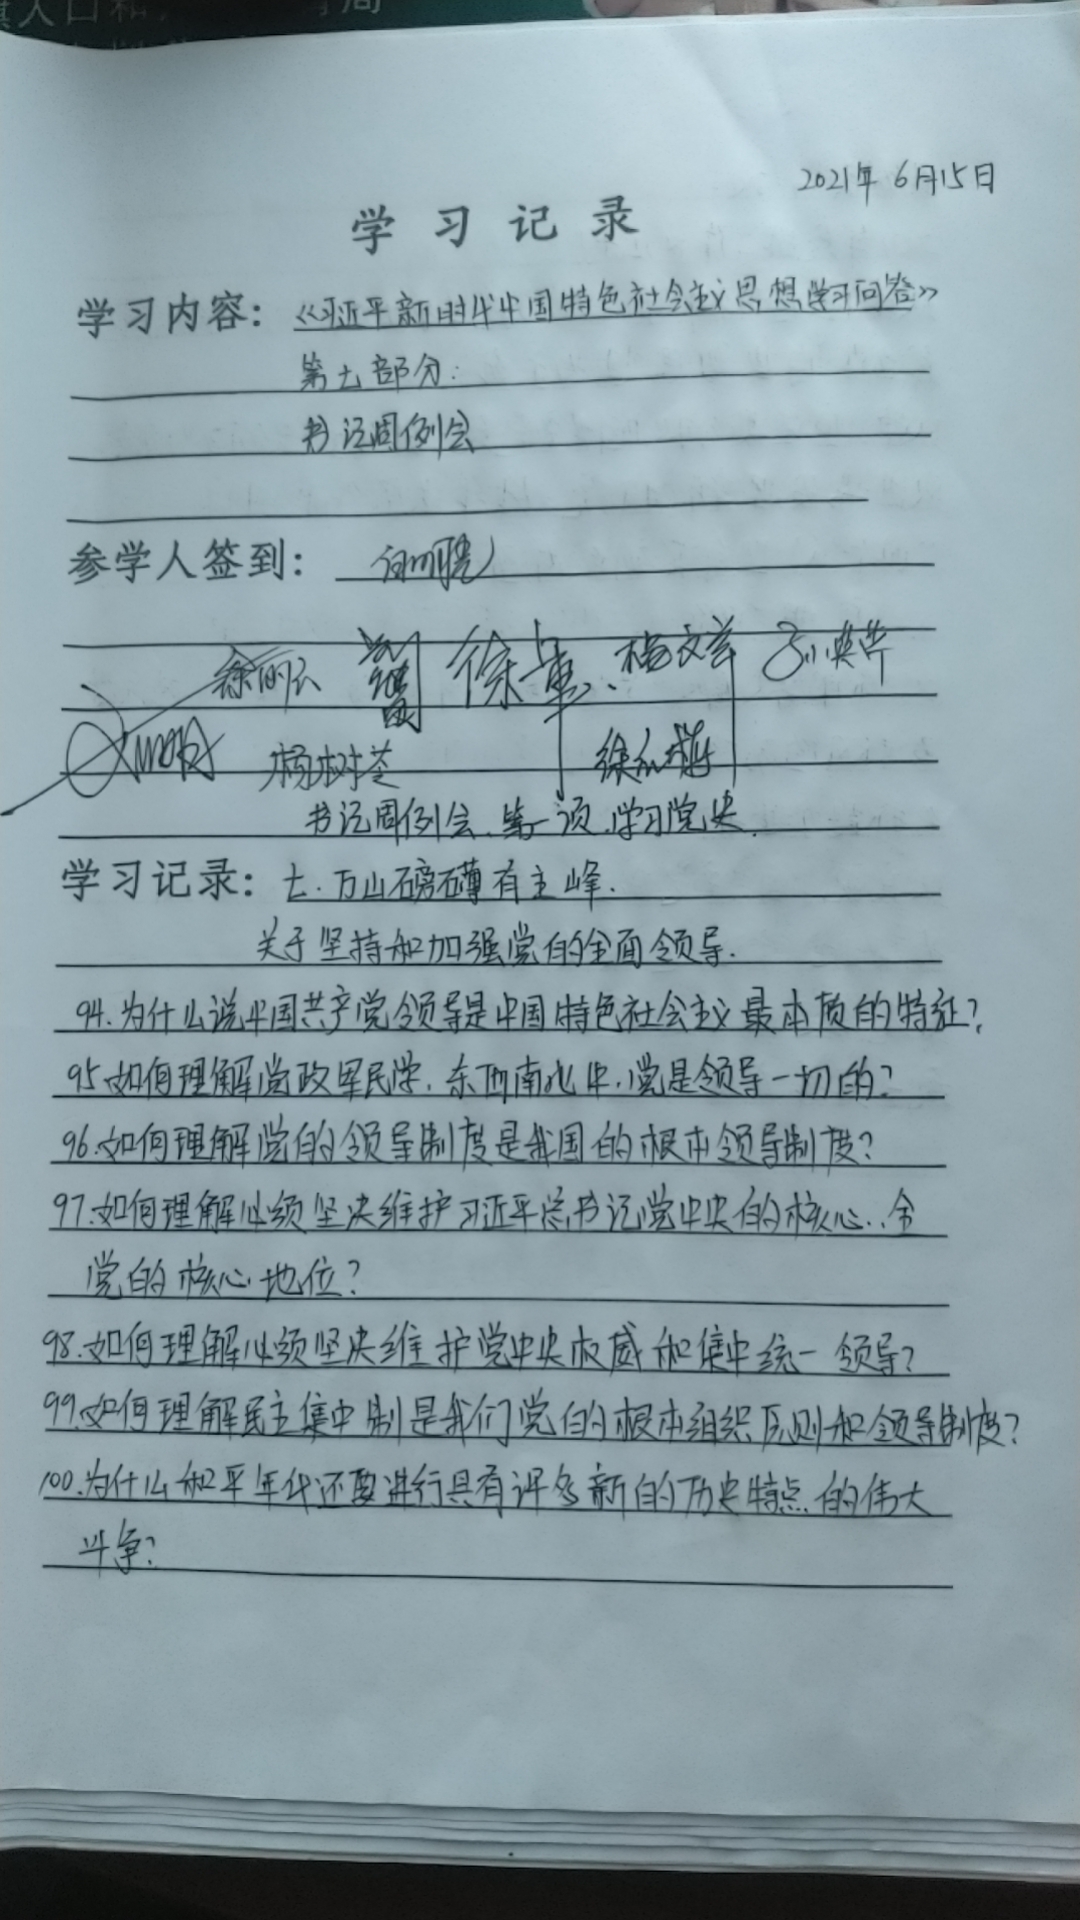 2021年6月15日
学习记录
学习内容：《习近平新时代中国特色社会主义思想学习问答》
第七部分：
书记周例会
参学人签到：
徐卓、杨文兰
杨树苓
书记周例会、第一项、学习党史
学习记录：七.万山磅礴有主峰.
关于坚持和加强党的全面领导.
94.为什么说中国共产党领导是中国特色社会主义最本质的特征?
95.如何理解党政军民学.东西南北中.党是领导一切的?
96.如何理解党的领导制度是我国的根本领导制度?
97.如何理解必须坚决维护习近平总书记党中央的核心、全
党的核心地位?
98.如何理解必须坚决维护党中央权威和集中统一领导?
99.如何理解民主集中制是我们党的根本组织原则和领导制度?
100.为什么和平年代还要进行具有许多新的历史特点的伟大
斗争?